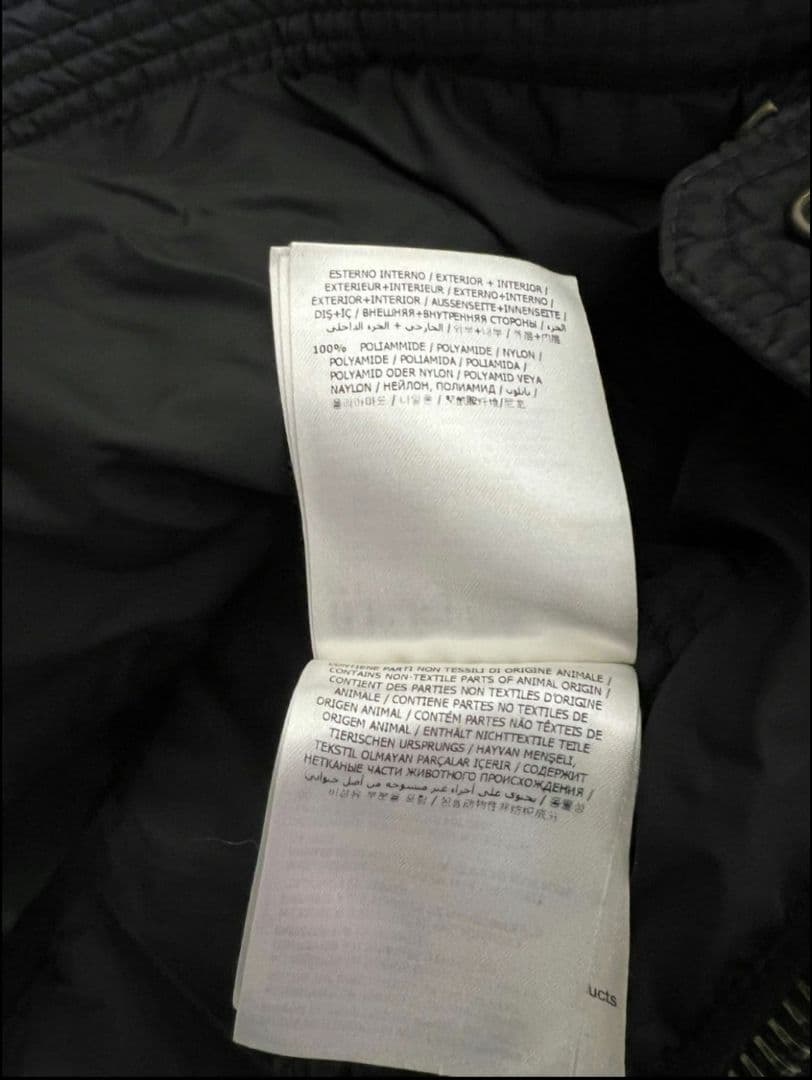 ESTERNO INTERNO / EXTERIOR + INTERIOR /
EXTERIEUR+INTERIEUR / EXTERNO+INTERNO /
EXTERIOR+INTERIOR / AUSSENSEITE+INNENSEITE /
DIŞ+IÇ / ВНЕШНЯЯ+ВНУТРЕННЯЯ СТОРОНЫ / الجزء
الخارجي + الجزء الداخلي / 외부+내부 /
100% POLIAMMIDE / POLYAMIDE / NYLON /
POLYAMIDE / POLIAMIDA / POLIAMIDA /
POLYAMID ODER NYLON / POLYAMID VEYA
NAYLON / НЕЙЛОН, ПОЛИАМИД / نايلون /
폴리아마드 / 나일론 /
CONTIENE PARTI NON TESSILI DI ORIGINE ANIMALE /
CONTAINS NON-TEXTILE PARTS OF ANIMAL ORIGIN /
CONTIENT DES PARTIES NON TEXTILES D'ORIGINE
ANIMALE / CONTIENE PARTES NO TEXTILES DE
ORIGEN ANIMAL / CONTÉM PARTES NÃO TÊXTEIS DE
ORIGEM ANIMAL / ENTHÄLT NICHTTEXTILE TEILE
TIERISCHEN URSPRUNGS / HAYVAN MENŞELİ,
TEKSTIL OLMAYAN PARÇALAR IÇERIR / СОДЕРЖИТ
НЕТКАНЫЕ ЧАСТИ ЖИВОТНОГО ПРОИСХОЖДЕНИЯ /
يحتوي على أجزاء غير منسوجة من أصل حيواني / 동물성
비섬유 부분을 포함 / 包含动物性非纺织成分
ucts